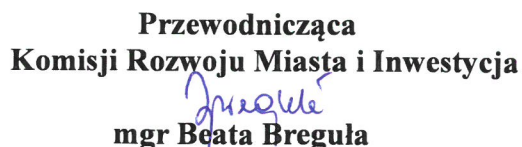 Przewodnicząca
Komisji Rozwoju Miasta i Inwestycja
mgr Beata Breguła